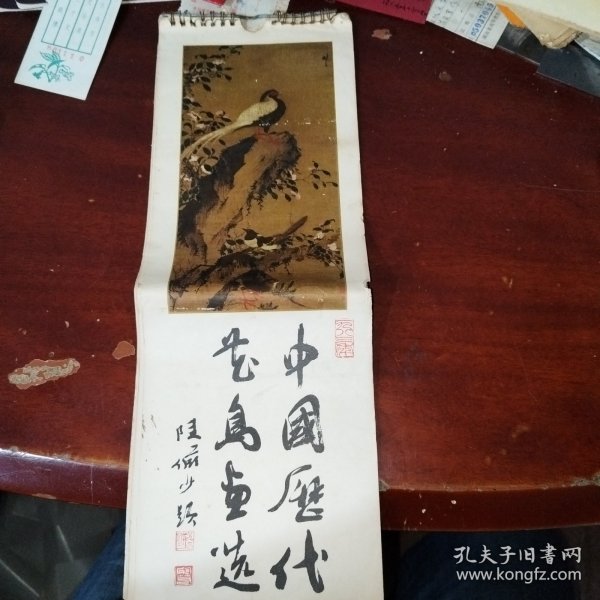 中國歷代
花鳥畫選
陸儼少題
孔夫子旧书网
www.kongfz.com